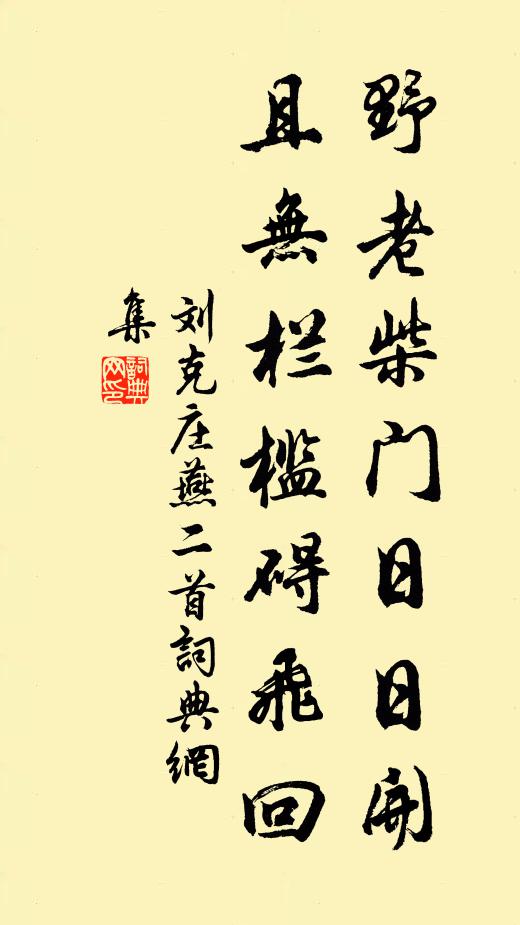 野老柴门日日開
且無栏槛碍飛回
刘克庄燕二首詞典網
集
詞典网印